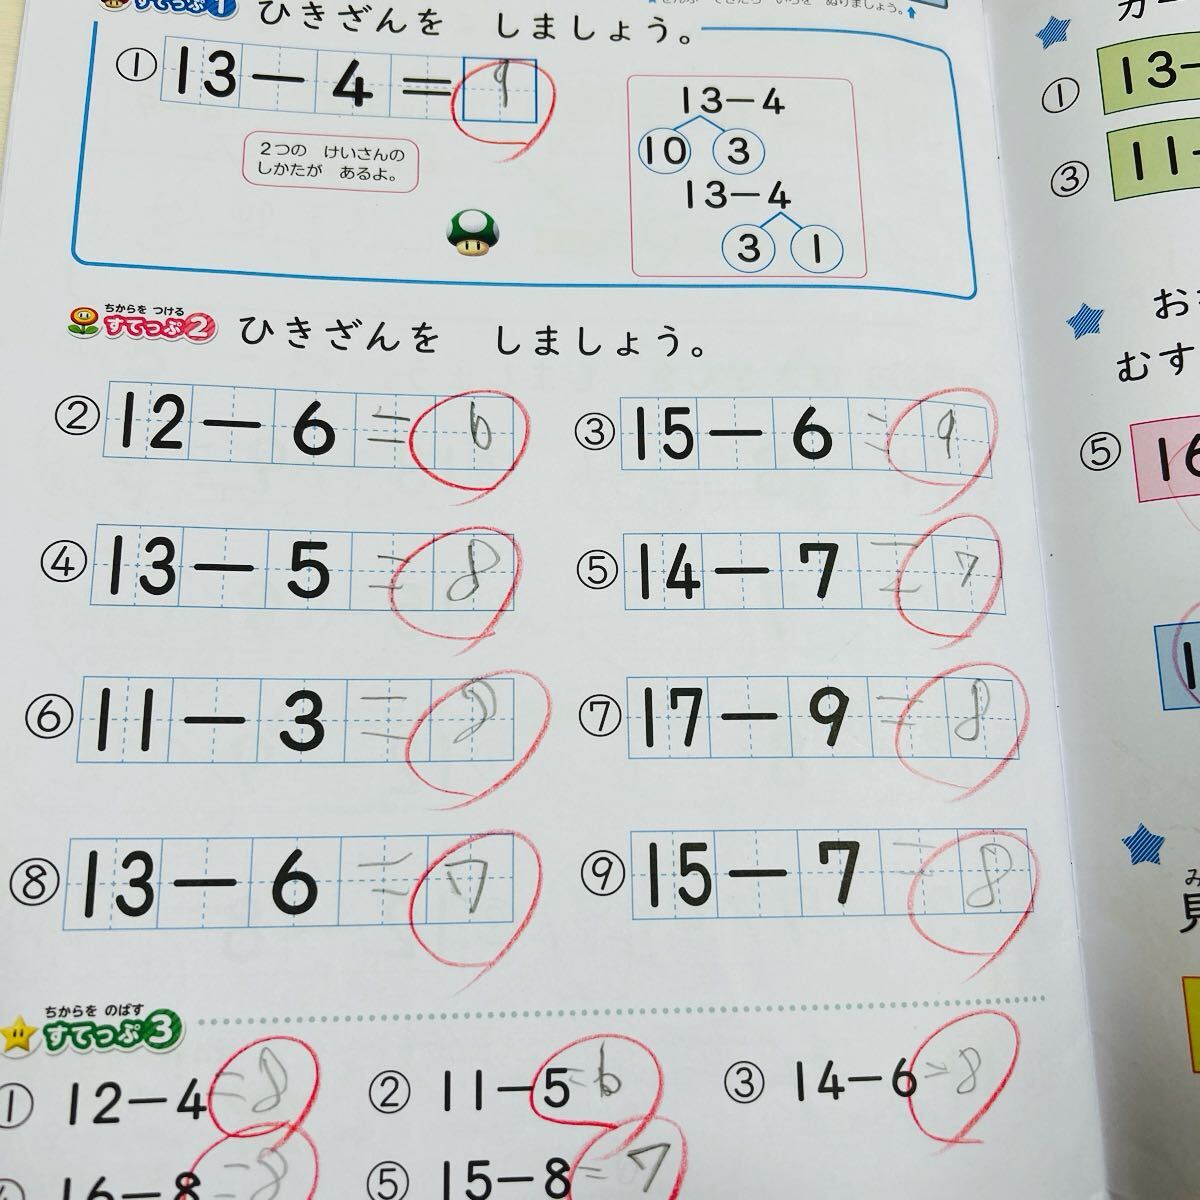 すてっぷ1 ひきざんを しましょう。
① 13－4＝9
2つの けいさんの
しかたが あるよ。
13－4
10 3
13－4
3 1
ちからを つける
すてっぷ2 ひきざんを しましょう。
② 12－6＝6
③ 15－6＝9
④ 13－5＝8
⑤ 14－7＝7
⑥ 11－3＝8
⑦ 17－9＝8
⑧ 13－6＝7
⑨ 15－7＝8
ちからを のばす
すてっぷ3
① 12－4＝8
② 11－5＝6
③ 14－6＝8
16－8＝8
⑤ 15－8＝7
① 13－
③ 11－
お
むす
⑤ 16